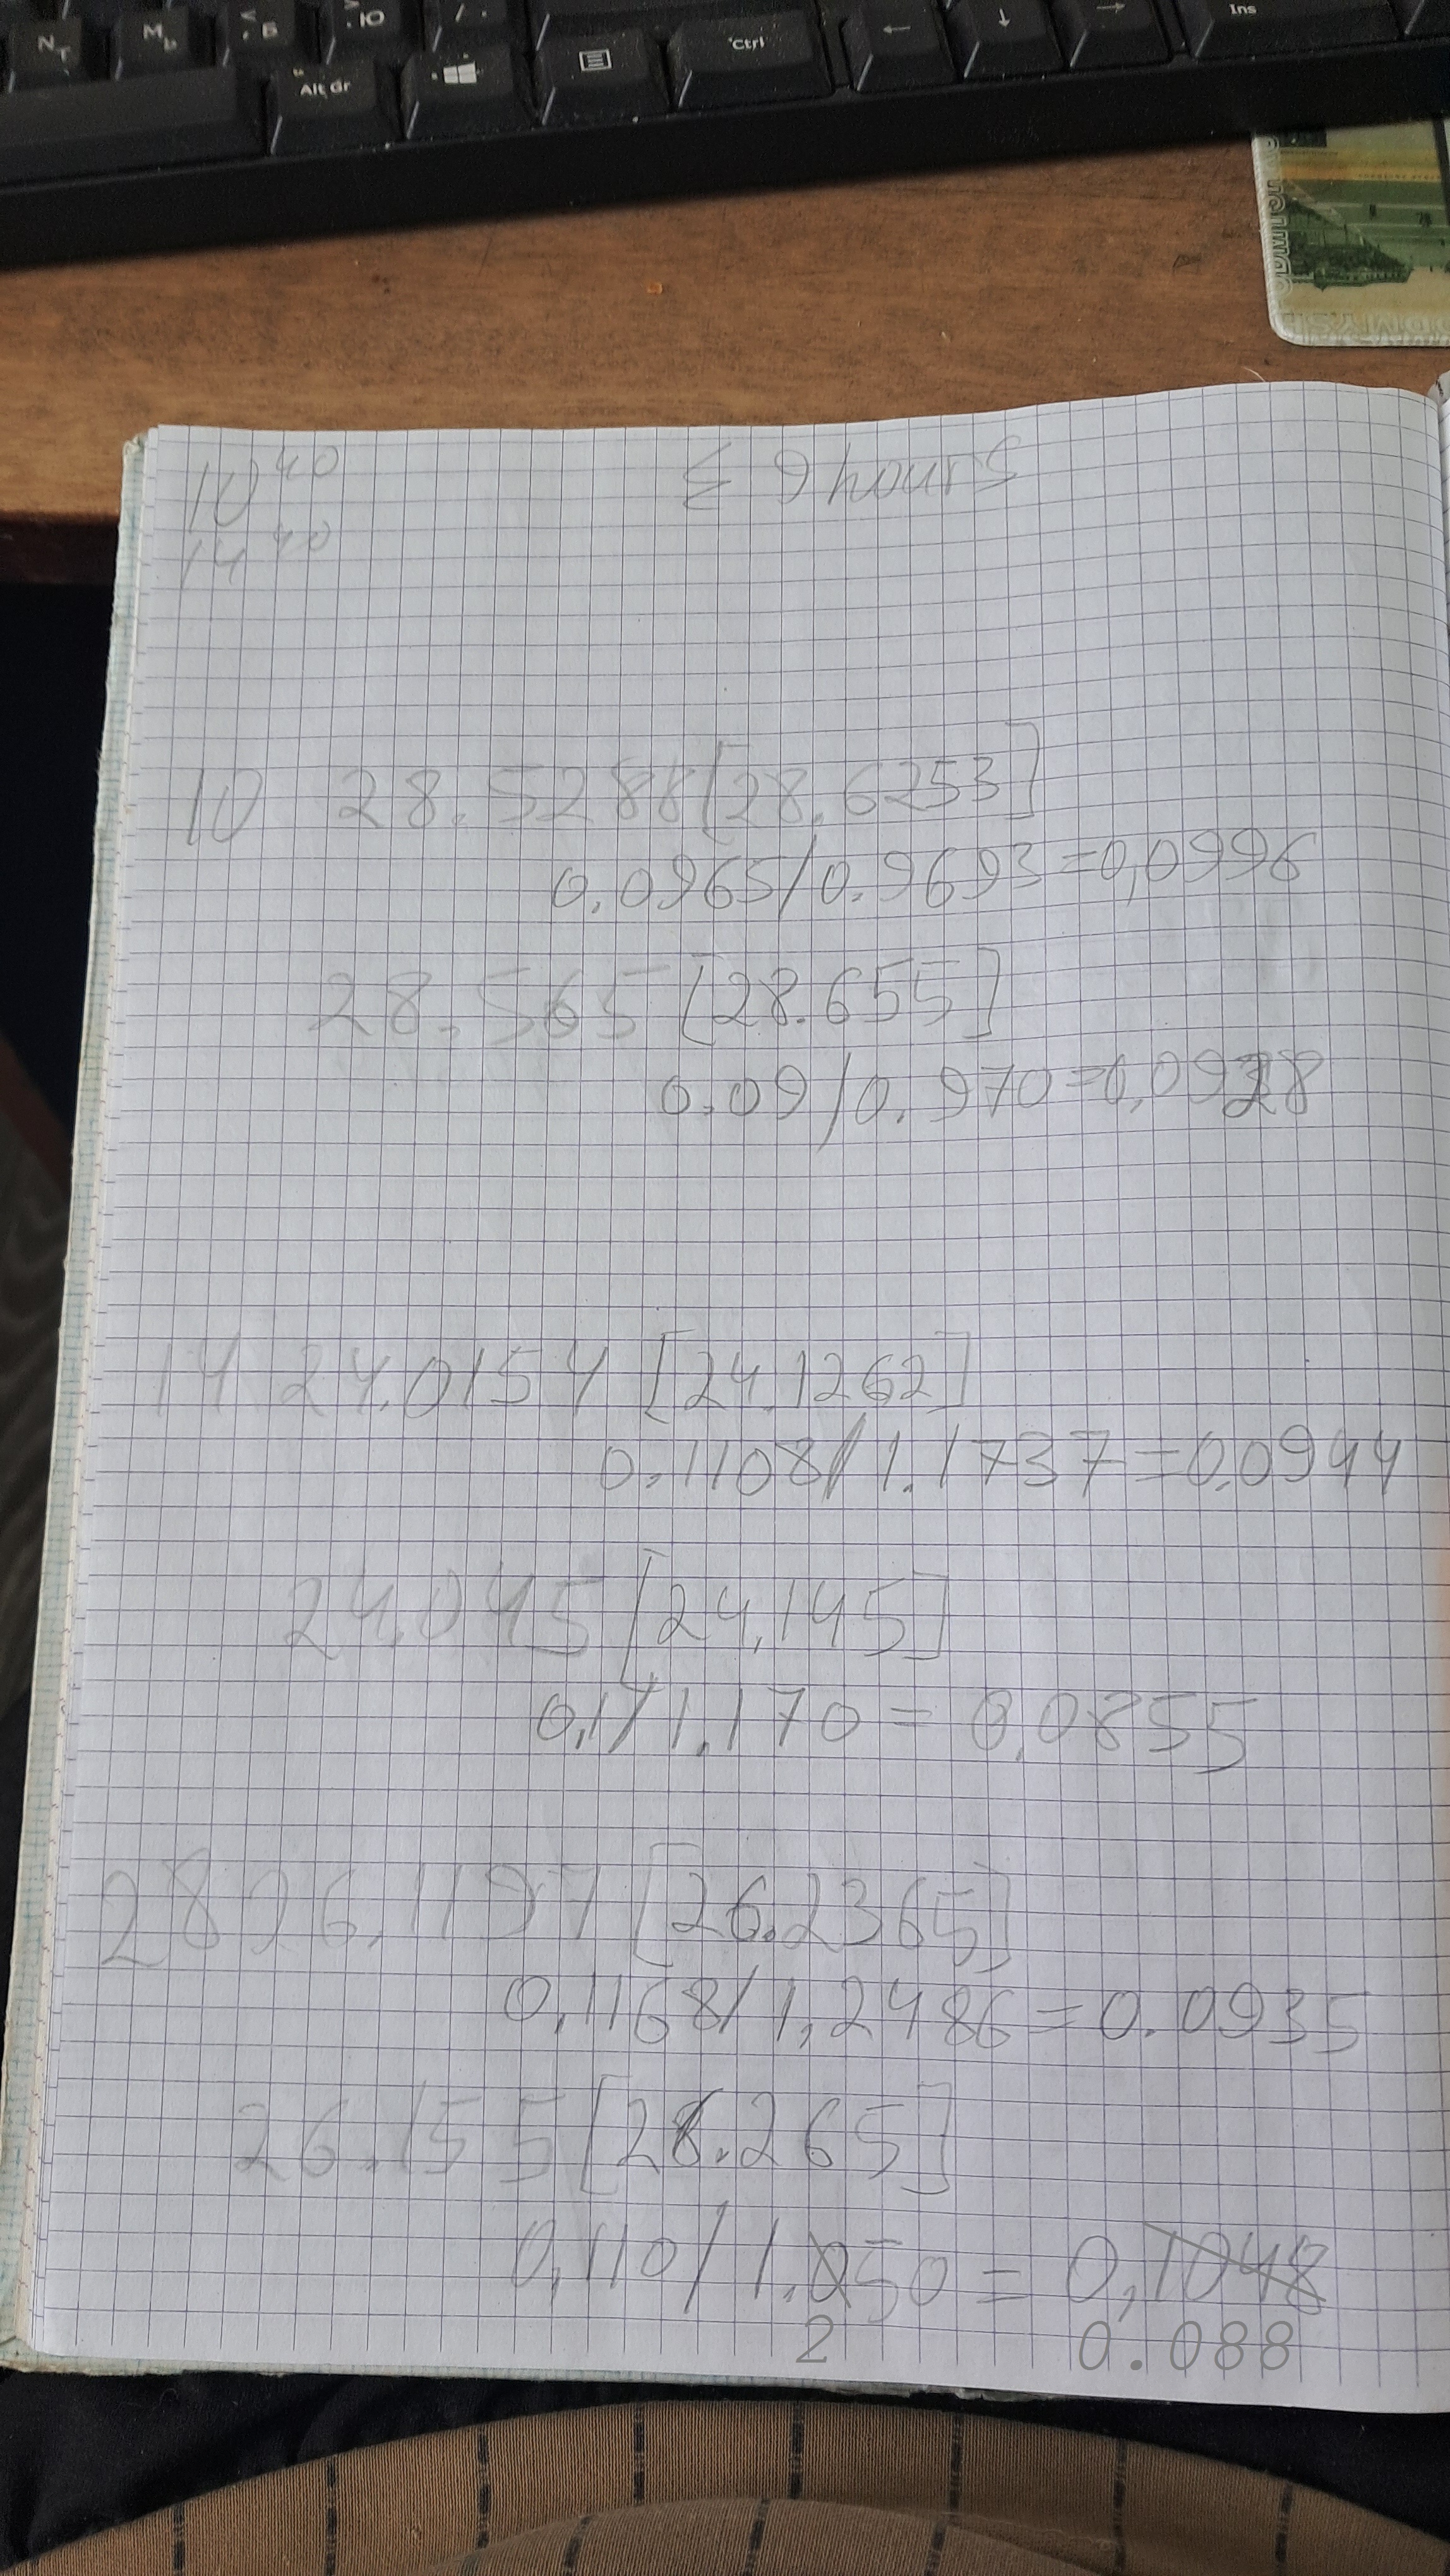 N т
M ь
< , Б
> . Ю
/ .
Alt Gr
Ctrl
←
↓
→
Ins
10⁴⁰
14⁴⁰
10 28.5288[28.6253]
0.0965/0.9693=0,0996
28.565[28.655]
0.09/0.970=0,0928
14 24.0154[24.1262]
0.1108/1.1737=0.0944
24.045[24.145]
0,1/1.170=0.0855
28 26.1197[26.2365]
0,1168/1,2486=0.0935
26.155[26.265]
0,110/1.050=0,1048
2 0.088